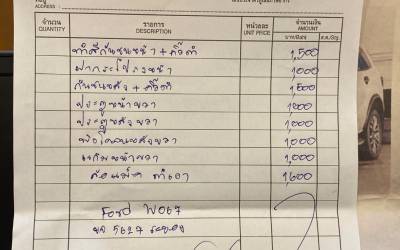 ADDRESS
จำนวน รายการ หน่วยละ จำนวนเงิน
QUANTITY DESCRIPTION UNIT PRICE AMOUNT
ทำสีกันชนหน้า + คิ้วดำ 1,500
ฝากระโปรงหน้า 1000
กันชนหลัง + คิ้วดำ 1,500
ประตูหน้าขวา 1,000
ประตูหลังขวา 1,000
บังโคลนหลังขวา 1,000
แก้มหน้าขวา 1,000
1,600
Ford W067
5627 ระยอง